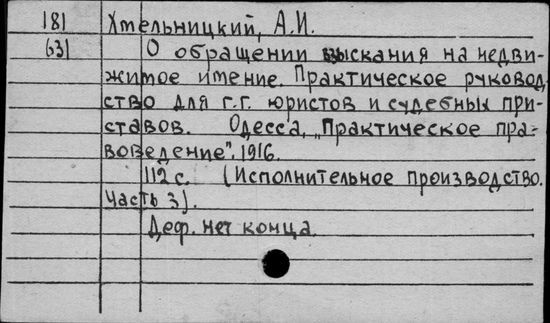 181 Хмельницкий, А.И.
631 О обращении взыскания на недви-
жимое имение. Практическое руковод
ство для г.г. юристов и судебных при-
ставов. Одесса, "Практическое пра-
воведение", 1916.
112 с. (Исполнительное производство.
Часть 3).
Деф. нет конца.